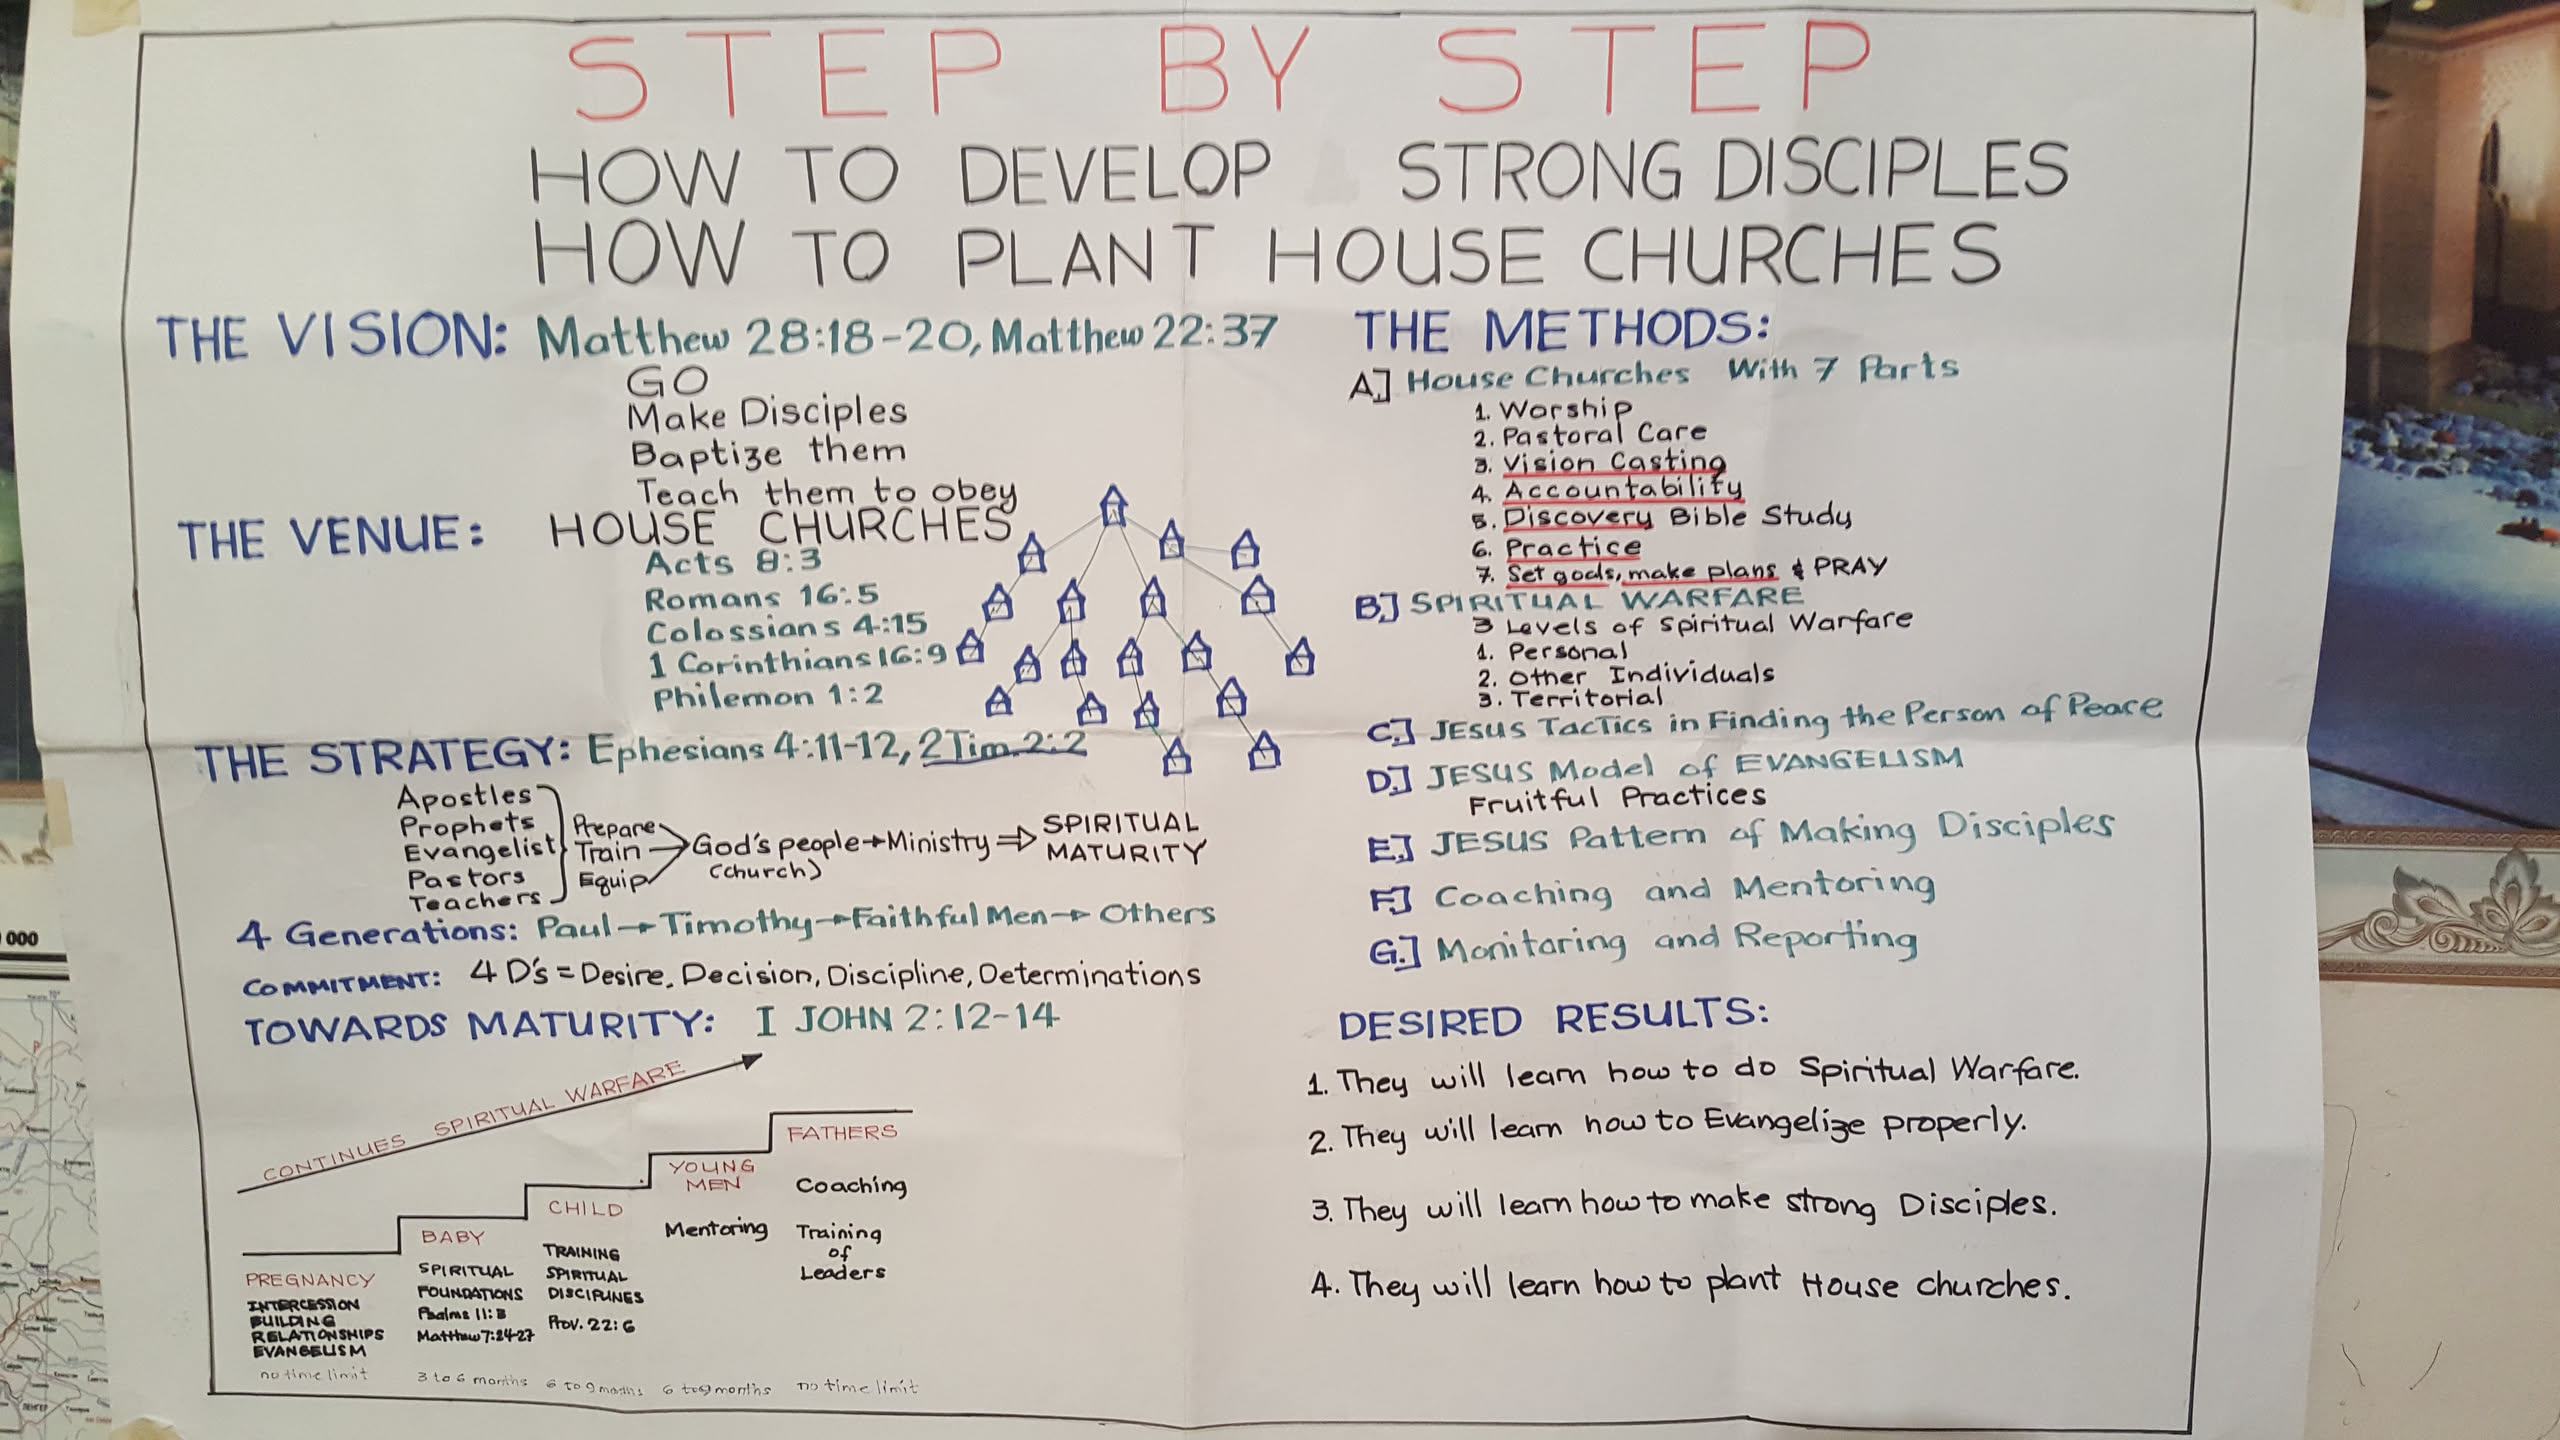 STEP BY STEP
HOW TO DEVELOP STRONG DISCIPLES
HOW TO PLANT HOUSE CHURCHES
THE VISION: Matthew 28:18-20, Matthew 22:37
GO
Make Disciples
Baptize them
Teach them to obey
THE VENUE: HOUSE CHURCHES
Acts 8:3
Romans 16:5
Colossians 4:15
1 Corinthians 16:9
Philemon 1:2
THE STRATEGY: Ephesians 4:11-12, 2 Tim. 2:2
Apostles
Prophets
Evangelist
Pastors
Teachers
Prepare
Train
Equip
God's people → Ministry ⇒ SPIRITUAL MATURITY
(church)
4 Generations: Paul → Timothy → Faithful Men → Others
COMMITMENT: 4 D's = Desire, Decision, Discipline, Determinations
TOWARDS MATURITY: I JOHN 2:12-14
CONTINUES SPIRITUAL WARFARE
PREGNANCY
INTERCESSION
BUILDING
RELATIONSHIPS
EVANGELISM
no time limit
BABY
SPIRITUAL
FOUNDATIONS
Psalms 11:3
Matthew 7:24-27
3 to 6 months
CHILD
TRAINING
SPIRITUAL
DISCIPLINES
Prov. 22:6
6 to 9 months
YOUNG
MEN
Mentoring
6 to 9 months
FATHERS
Coaching
Training
of
Leaders
no time limit
THE METHODS:
A.] House Churches With 7 Parts
1. Worship
2. Pastoral Care
3. Vision Casting
4. Accountability
5. Discovery Bible Study
6. Practice
7. Set goals, make plans & PRAY
B.] SPIRITUAL WARFARE
3 Levels of Spiritual Warfare
1. Personal
2. Other Individuals
3. Territorial
C.] JESUS TACTICS in Finding the Person of Peace
D.] JESUS Model of EVANGELISM
Fruitful Practices
E.] JESUS Pattern of Making Disciples
F.] Coaching and Mentoring
G.] Monitoring and Reporting
DESIRED RESULTS:
1. They will learn how to do Spiritual Warfare.
2. They will learn how to Evangelize properly.
3. They will learn how to make strong Disciples.
4. They will learn how to plant House churches.
000